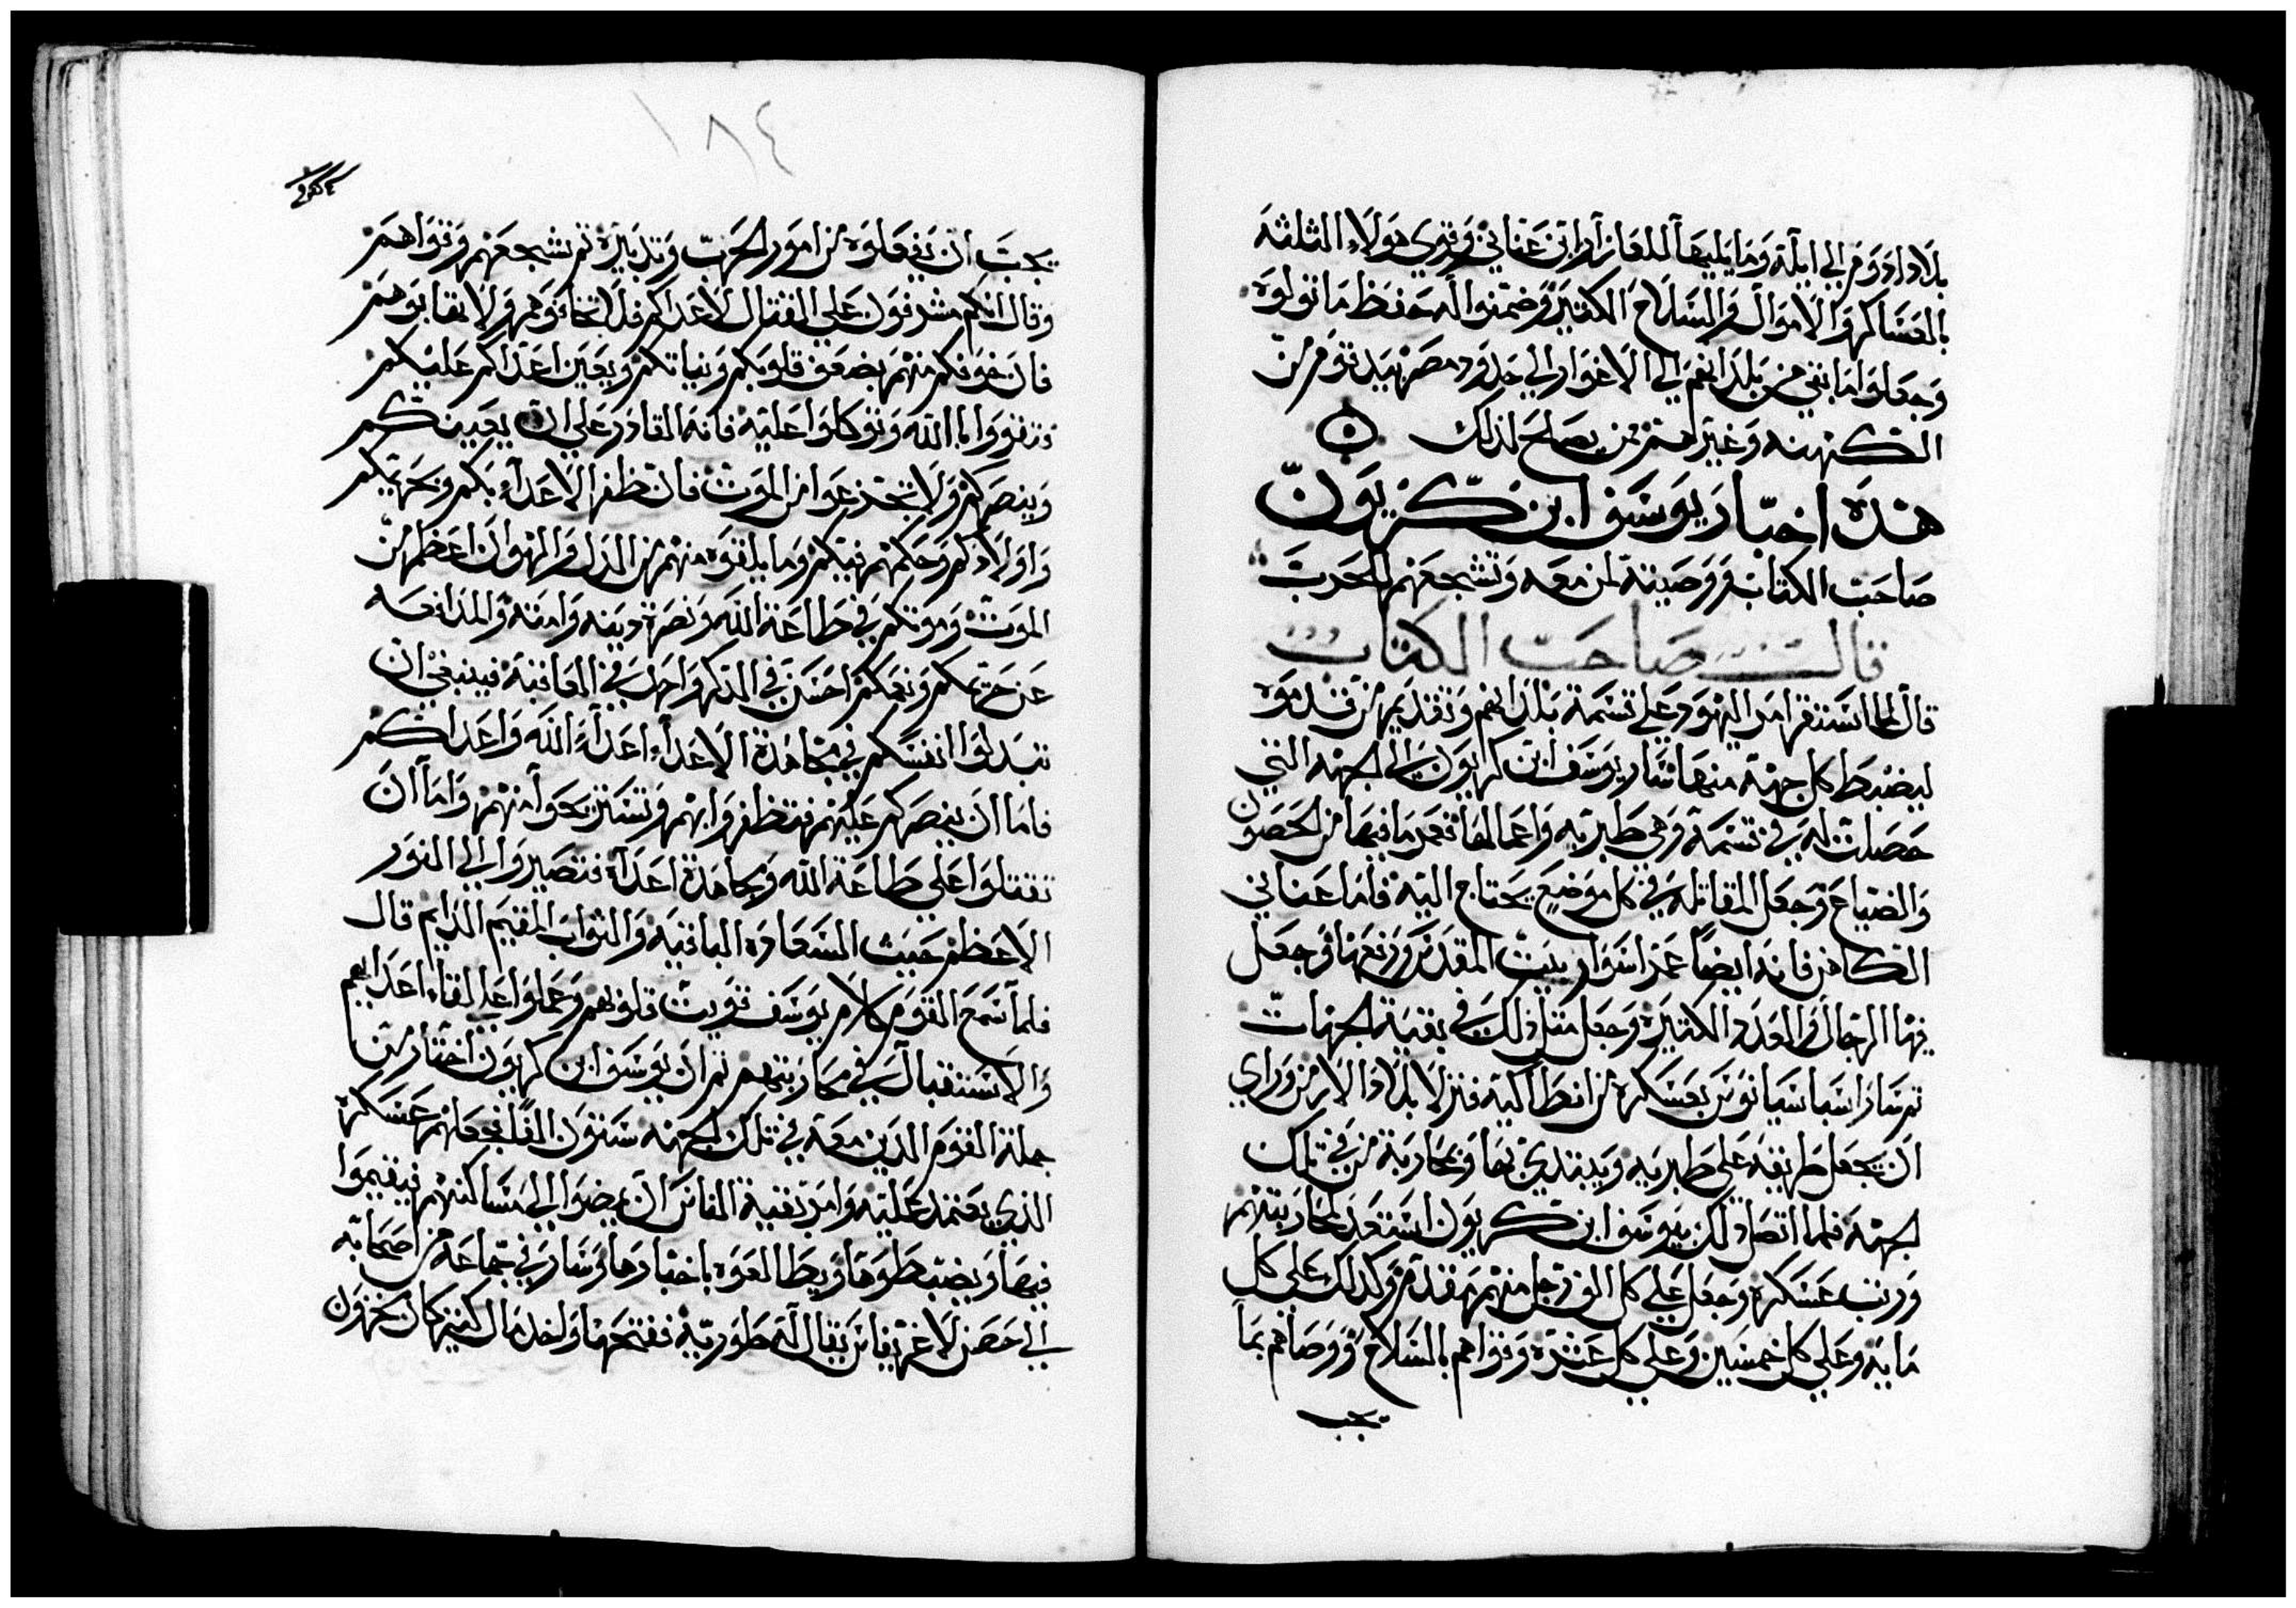 بلاد ادوم الي ايلة وما يليها للعازار ابن عناني وقوي هولاء الثلثه
بالعساكر والاموال والسلاح الكثير وضمنوا له حفظ ما تولوه
وجعلوا ما بقي من بلدانهم الي الاغوار الي حدود مصر بيد قوم من
الكهنه وغيرهم ممن يصلح لذلك
هذه اخبار يوسف ابن كريون
صاحب الكتاب ووصيته لمن معه وتشجعهم للحرب
قال صاحب الكتاب
قال لما استقر امر اليهود علي قسمة بلدانهم وتقديم من قدموه
ليضبط كل جهة منها سار يوسف ابن كريون الي الجهه التي
حصلت له في قسمة وهي طبريه واعمالها فعمر ما فيها من الحصون
والضياع وجعل المقاتله في كل موضع يحتاج اليه فاما عناني
الكاهن فانه ايضا عمر اسوار بيت المقدس ورفعها وجعل
فيها الرجال والعدد الكثيره وجعل مثل ذلك في بقية الجهات
ثم سار اسباسيانوس بعسكره من انطاكية فنزلا بلاد الارمن وراي
ان يجعل طريقه علي طبريه ويبتدي بها وبمحاربة من في تلك
الجهة فلما اتصل ذلك بيوسف ابن كريون استعد لمحاربتهم
ورتب عسكره وجعل علي كل الف رجل منهم مقدم وكذلك علي كل
مايه وعلي كل خمسين وعلي كل عشره وقواهم بالسلاح ووصاهم بما
يجب
١٨٤
يجب ان يفعلوه من امور الحرب وتدبيره ثم شجعهم وقواهم
وقال انكم مشرفون علي القتال لاعداكم فلا تخافوهم ولا تهابوهم
فان خوفكم منهم يضعف قلوبكم ونياتكم ويعين اعداكم عليكم
وتقووا بالله وتوكلوا عليه فانه القادر علي ان يعينكم
وينصركم ولا تجزعوا من الموت فان ظفر الاعداء بكم وبحريمكم
واولادكم وحكمهم فيكم وما يلقوه منهم من الذل والهوان اعظم من
الموت وموتكم في طاعة الله ونصرة دينه وامته والمدافعه
عن حريمكم ونعمكم احسن في الذكر واجمل في العاقبة فينبغي ان
تبدلوا انفسكم في مجاهدة الاعداء اعداء الله واعداكم
فاما ان ينصركم عليهم فتظفروا بهم وتستريحوا منهم واما ان
تقتلوا علي طاعة الله ومجاهدة اعداه فتصيروا الي الفوز
الاعظم حيث السعاده الباقيه والثواب المقيم الدايم قال
فلما سمع القوم كلام يوسف قويت قلوبهم وعملوا علي لقاء اعدايهم
والاستقبال في محاربتهم ثم ان يوسف ابن كريون اختار من
جملة القوم الدين معه في تلك الجهه ستون الفا فجعلهم عسكره
الذي يعتمد عليه وامر بقية الناس ان يمضوا الي مساكنهم فيقيموا
فيها ويضبطوها ويطالعوه باخبارها وسار في جماعة من اصحابه
الي حصن لاغريفاس يقال له طوريه ففتحها واخد مال كثير كان مخزون